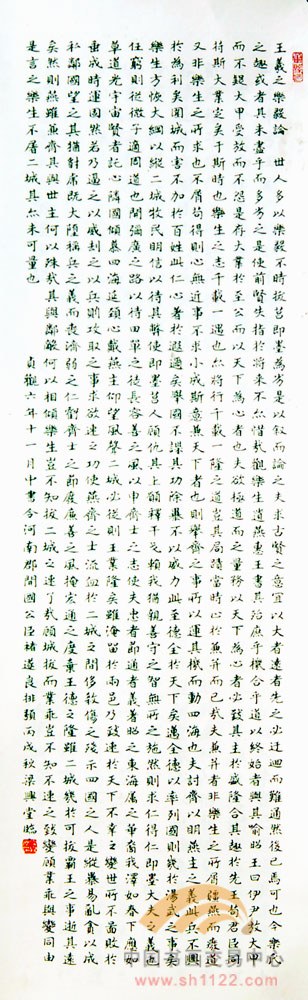 王羲之樂毅論 世人多以樂毅不時拔莒即墨為劣是以叙而論之夫求古賢之意宜以大者遠者先之必迂迴而難通然後已焉可也今樂氏
之趣或者其未盡乎而多劣之是使前賢失指於將來不亦惜哉觀樂生遺燕惠王書其殆庶乎機合乎道以終始者與其喻昭王曰伊尹放大甲
而不疑大甲受放而不怨是存大業於至公而以天下為心者也夫欲極道之量務以天下為心者必致其主於盛隆合其趣於先王苟君臣同
符斯大業定矣于斯時也樂生之志千載一遇也亦將行千載一隆之道豈其局蹟當時止於兼并而已哉夫兼并者非樂生之所屑彊燕而廢道
又非樂生之所求也不屑苟得則心無近事不求小成斯意兼天下者也則舉齊之事所以運其機而動四海也夫討齊以明燕主之義此兵不興
於為利矣圍城而害不加於百姓此仁心著於遐邇矣舉國不謀其功除暴不以威力此至德全於天下矣邁全德以率列國則幾於湯武之事矣
樂生方恢大綱以縱二城牧民明信以待其弊使即墨莒人顧仇其上願釋干戈賴我猶親善守之智無所之施然則求仁得仁即墨大夫之義也
任窮則從微子適周之道也開彌廣之路以待田單之徒長容善之風以申齊士之志使夫忠者遂節通者義著昭之東海屬之華裔我澤如春下應如
草道光宇宙賢者託心隣國傾慕四海延頸思戴燕主仰望風聲二城必從則王業隆矣雖淹留於兩邑乃致速於天下不幸之變世所不圖敗於
垂成時運固然若乃逼之以威劫之以兵則攻取之事求欲速之功使燕齊之士流血於二城之間侈殺傷之殘示四國之人是縱暴易亂貪以成
私鄰國望之其猶豺虎既大墮稱兵之義而喪濟弱之仁虧齊士之節廢廉善之風掩宏通之度棄王德之隆雖二城幾於可拔霸王之事逝其遠
矣然則燕雖兼齊其與世主何以殊哉其與鄰敵何以相傾樂生豈不知拔二城之速了哉顧城拔而業乖豈不知不速之致變顧業乖與變同由
是言之樂生不屠二城其亦未可量也
貞觀六年十一月中書令河南郡開國公臣褚遂良排類丙戌秋梁興堂臨
www.sh1122.com